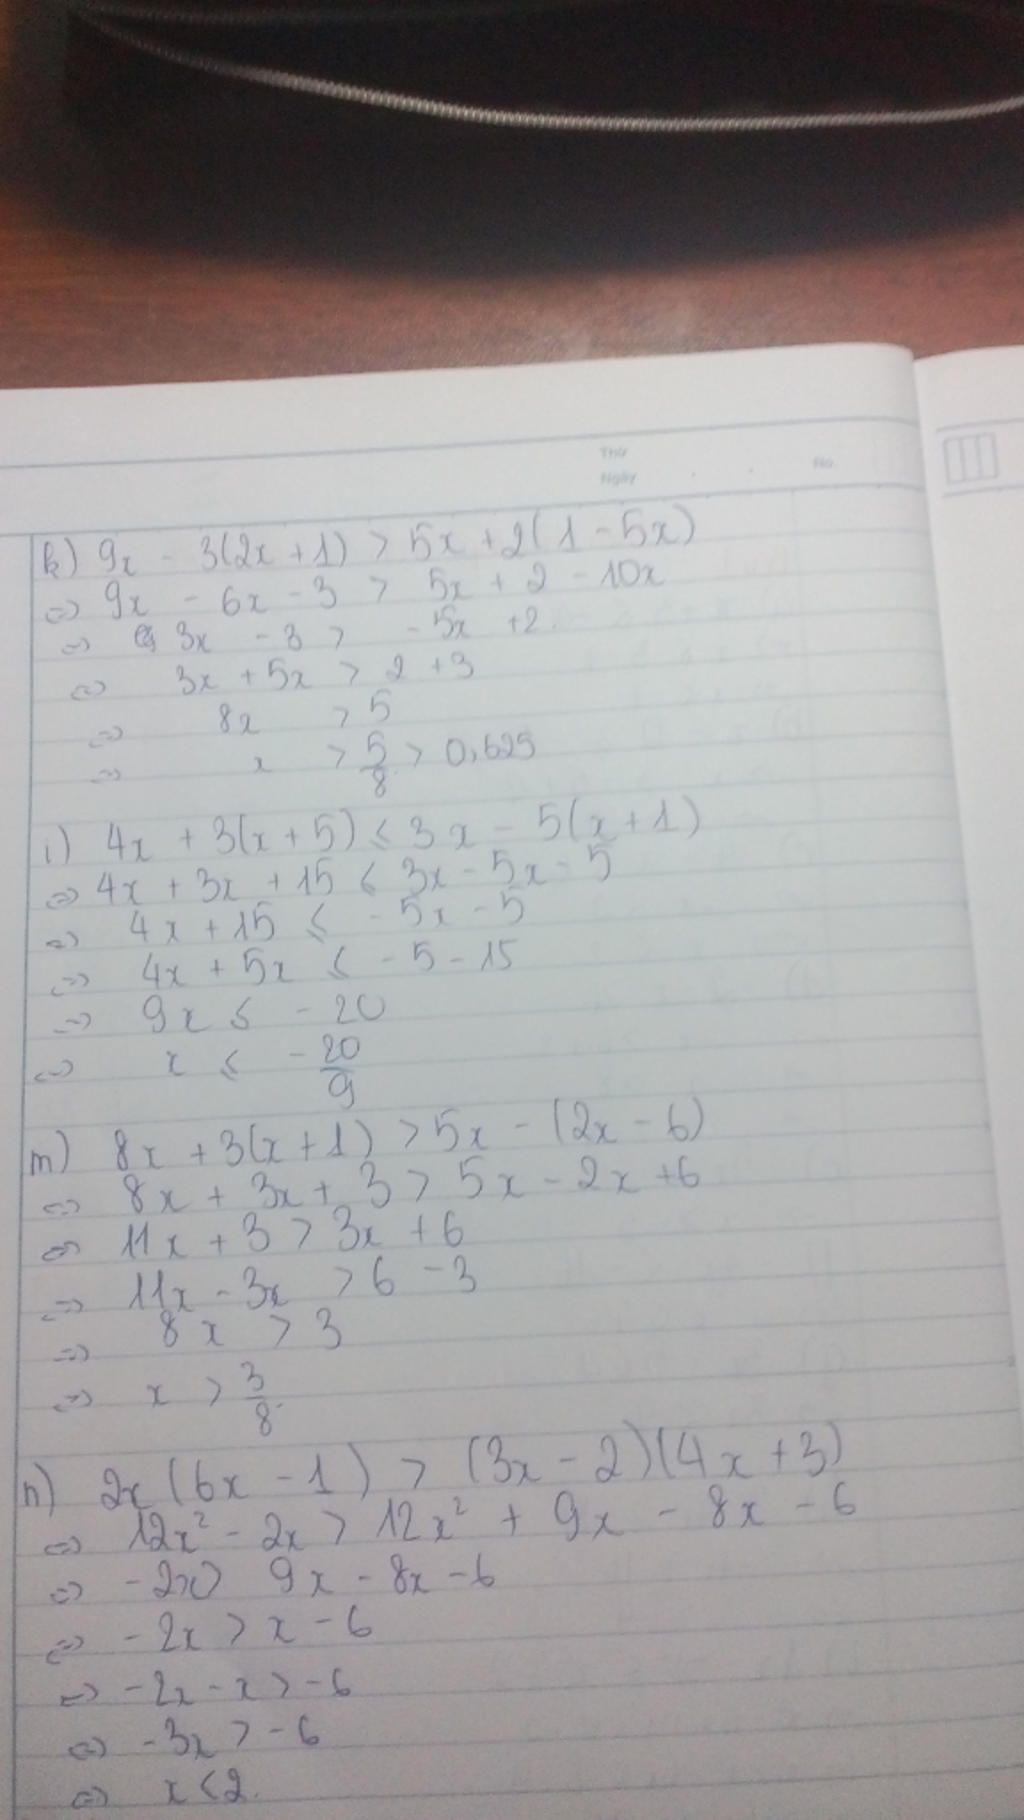 Thứ
Ngày . . No.
k) 9x - 3(2x + 1) > 5x + 2(1 - 5x)
<=> 9x - 6x - 3 > 5x + 2 - 10x
<=> 3x - 3 > - 5x + 2.
<=> 3x + 5x > 2 + 3
<=> 8x > 5
<=> x > 5/8 > 0,625
i) 4x + 3(x + 5) ≤ 3x - 5(x + 1)
<=> 4x + 3x + 15 ≤ 3x - 5x - 5
<=> 4x + 15 ≤ - 5x - 5
<=> 4x + 5x ≤ - 5 - 15
<=> 9x ≤ - 20
<=> x ≤ - 20/9
m) 8x + 3(x + 1) > 5x - (2x - 6)
<=> 8x + 3x + 3 > 5x - 2x + 6
<=> 11x + 3 > 3x + 6
<=> 11x - 3x > 6 - 3
<=> 8x > 3
<=> x > 3/8.
n) 2x (6x - 1) > (3x - 2)(4x + 3)
<=> 12x² - 2x > 12x² + 9x - 8x - 6
<=> - 2x > 9x - 8x - 6
<=> - 2x > x - 6
<=> - 2x - x > - 6
<=> - 3x > - 6
<=> x < 2.